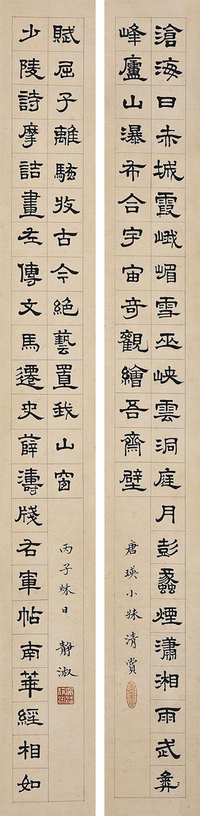 滄海日赤城霞峨嵋雪巫峽雲洞庭月彭蠡煙瀟湘雨武彝
峰廬山瀑布合宇宙奇觀繪吾齋壁
唐瑛小妹清賞
少陵詩摩詰畫左傳文馬遷史薛濤牋右軍帖南華經相如
賦屈子離騷收古今絕藝置我山窗
丙子秌日 靜淑